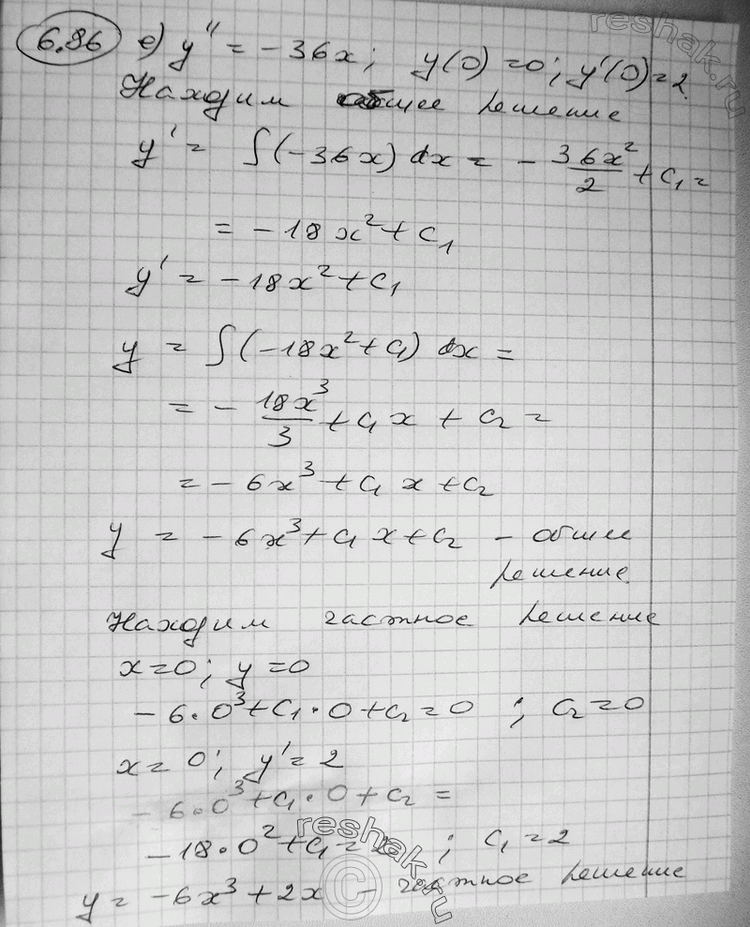 reshak.ru
6.86 е) y'' = -36x; y(0)=0; y'(0)=2.
Находим общее решение
y' = ∫(-36x) dx = - 36x²/2 + C₁ =
= -18x² + C₁
y' = -18x² + C₁
y = ∫(-18x² + C₁) dx =
= - 18x³/3 + C₁x + C₂ =
= -6x³ + C₁x + C₂
y = -6x³ + C₁x + C₂ - общее
решение
Находим частное решение
x=0; y=0
-6·0³+C₁·0+C₂=0 ; C₂=0
x=0; y'=2
-6·0³+C₁·0+C₂=
-18·0²+C₁= ; C₁=2
y = -6x³+2x - частное решение
reshak.ru
©